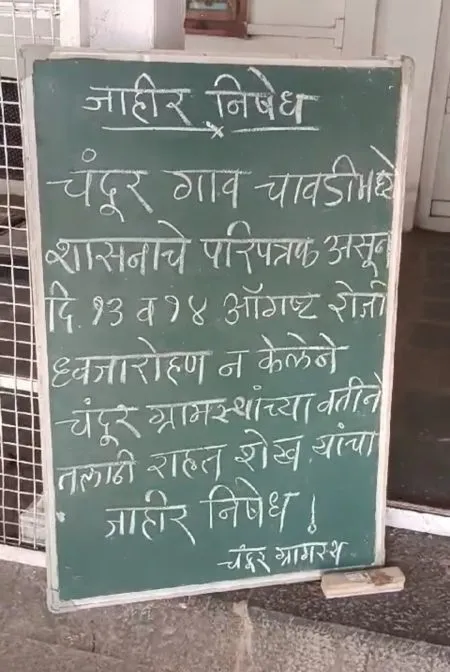 जाहीर निषेध
चंदूर गाव चावडीमध्ये
शासनाचे परिपत्रक असून
दि. १३ व १४ ऑगष्ट रोजी
ध्वजारोहण न केलेने
चंदूर ग्रामस्थांच्या वतीने
तलाठी राहत शेख यांचा
जाहीर निषेध !
चंदूर ग्रामस्थ